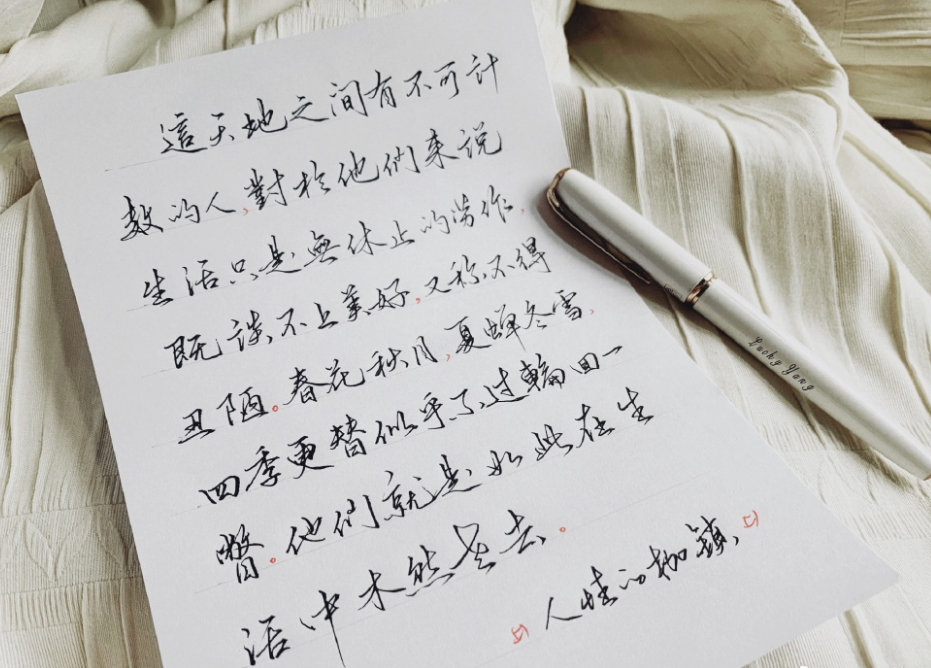 這天地之间有不可計
数的人,對於他們来说
生活只是無休止的劳作,
既谈不上美好,又称不得
丑陋。春花秋月,夏蝉冬雪,
四季更替似乎不过輪回一
瞥。他們就是如此在生
活中木然老去。
《人性的枷鎖》
Lucky Yang